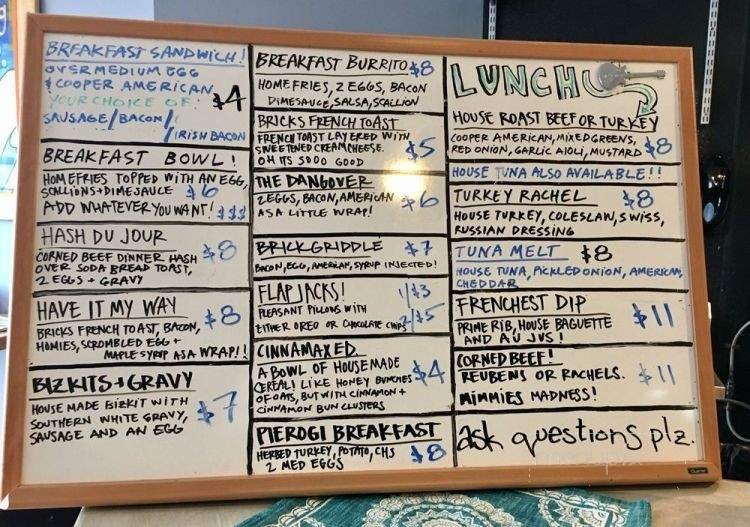 BREAKFAST SANDWICH!
OVER MEDIUM EGG
& COOPER AMERICAN
YOUR CHOICE OF: $4
SAUSAGE/BACON/
/IRISH BACON
BREAKFAST BOWL!
HOMEFRIES TOPPED WITH AN EGG,
SCALLIONS + DIMESAUCE $6
ADD WHATEVER YOU WANT! $$$
HASH DU JOUR
CORNED BEEF DINNER HASH $8
OVER SODA BREAD TOAST,
2 EGGS + GRAVY
HAVE IT MY WAY
BRICKS FRENCH TOAST, BACON, $8
HOMIES, SCROMBLED EGG +
MAPLE SYRUP AS A WRAP!!
BIZKITS + GRAVY
HOUSE MADE BIZKIT WITH
SOUTHERN WHITE GRAVY, $7
SAUSAGE AND AN EGG
BREAKFAST BURRITO $8
HOMEFRIES, 2 EGGS, BACON
DIMESAUCE, SALSA, SCALLION
BRICKS FRENCH TOAST
FRENCH TOAST LAYERED WITH
SWEETENED CREAMCHEESE. $5
OH ITS SOOO GOOD
THE DANGOVER
2 EGGS, BACON, AMERICAN $6
AS A LITTLE WRAP!
BRICKGRIDDLE $7
BACON, EGG, AMERICAN, SYRUP INJECTED!
FLAPJACKS! 1/$3
PLEASANT PILLOWS WITH
EITHER OREO OR CHOCOLATE CHIPS 2/$5
CINNAMAXED.
A BOWL OF HOUSEMADE
CEREAL! LIKE HONEY BUNCHES $4
OF OATS, BUT WITH CINNAMON +
CINNAMON BUN CLUSTERS
PIEROGI BREAKFAST
HERBED TURKEY, POTATO, CHS $8
2 MED EGGS
LUNCH
HOUSE ROAST BEEF OR TURKEY
COOPER AMERICAN, MIXED GREENS,
RED ONION, GARLIC AIOLI, MUSTARD $8
HOUSE TUNA ALSO AVAILABLE!!
TURKEY RACHEL $8
HOUSE TURKEY, COLESLAW, SWISS,
RUSSIAN DRESSING
TUNA MELT $8
HOUSE TUNA, PICKLED ONION, AMERICAN,
CHEDDAR
FRENCHEST DIP
PRIME RIB, HOUSE BAGUETTE $11
AND AU JUS!
CORNED BEEF!
REUBENS OR RACHELS. $11
MIMMIES MADNESS!
ask questions plz.